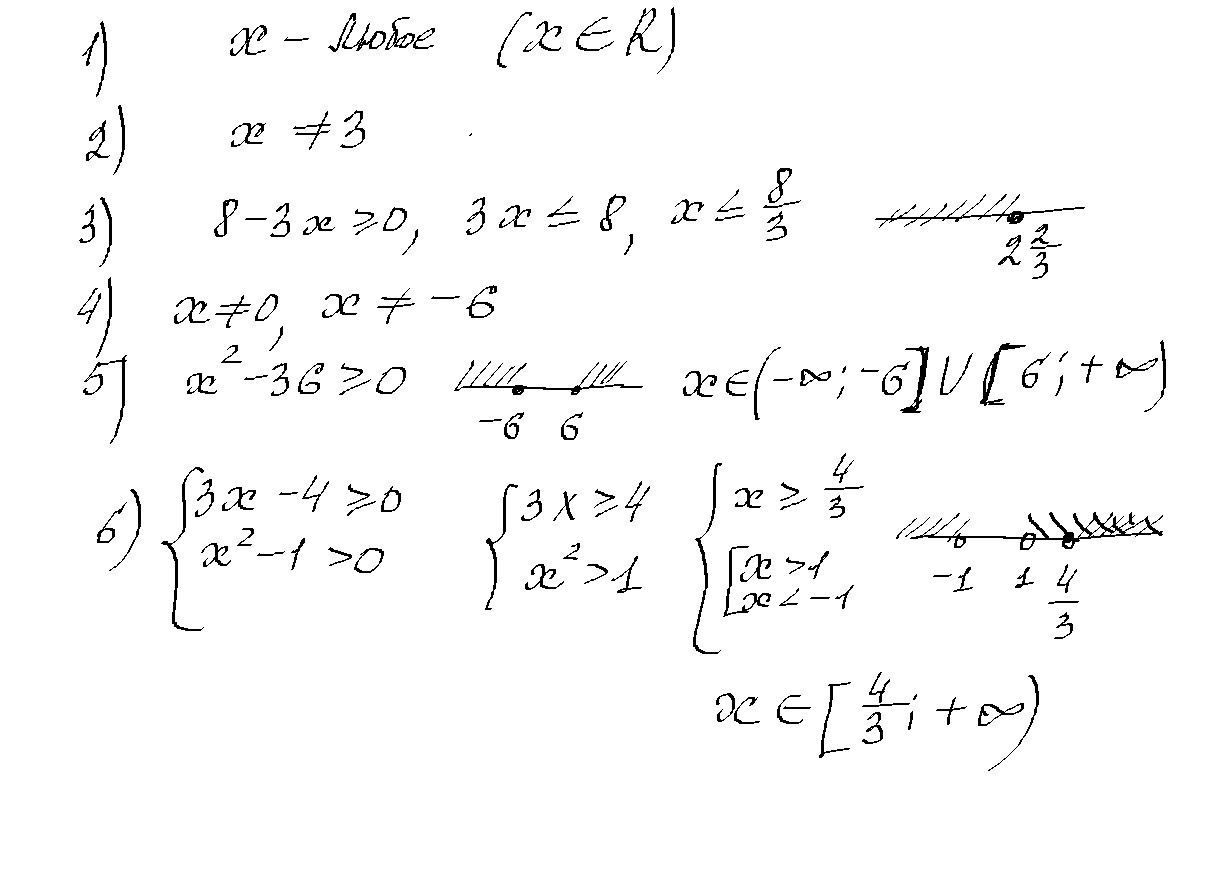 1) x – любое (x ∈ R)
2) x ≠ 3
3) 8 - 3x ≥ 0, 3x ≤ 8, x ≤ 8/3 2 2/3
4) x ≠ 0, x ≠ -6
5) x² - 36 ≥ 0 -6 6 x ∈ (-∞; -6] ∪ [6; +∞)
6) { 3x - 4 ≥ 0 { 3x ≥ 4 { x ≥ 4/3
x² - 1 > 0 x² > 1 [ x > 1
x < -1
-1 1 4/3
x ∈ [4/3; +∞)